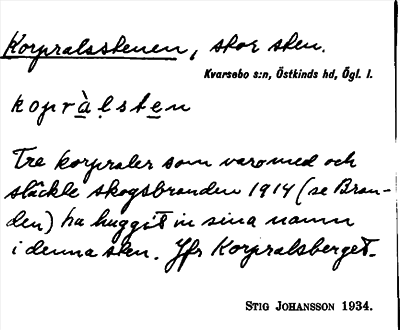 Korpralsstenen, stor sten.
Kvarsebo s:n, Östkinds hd, Ögl. l.
kopràlsten
Tre korpraler som varo med och
släckte skogsbranden 1914 (se Bran-
den) ha huggit in sina namn
i denna sten. Jfr Korpralsberget.
STIG JOHANSSON 1934.